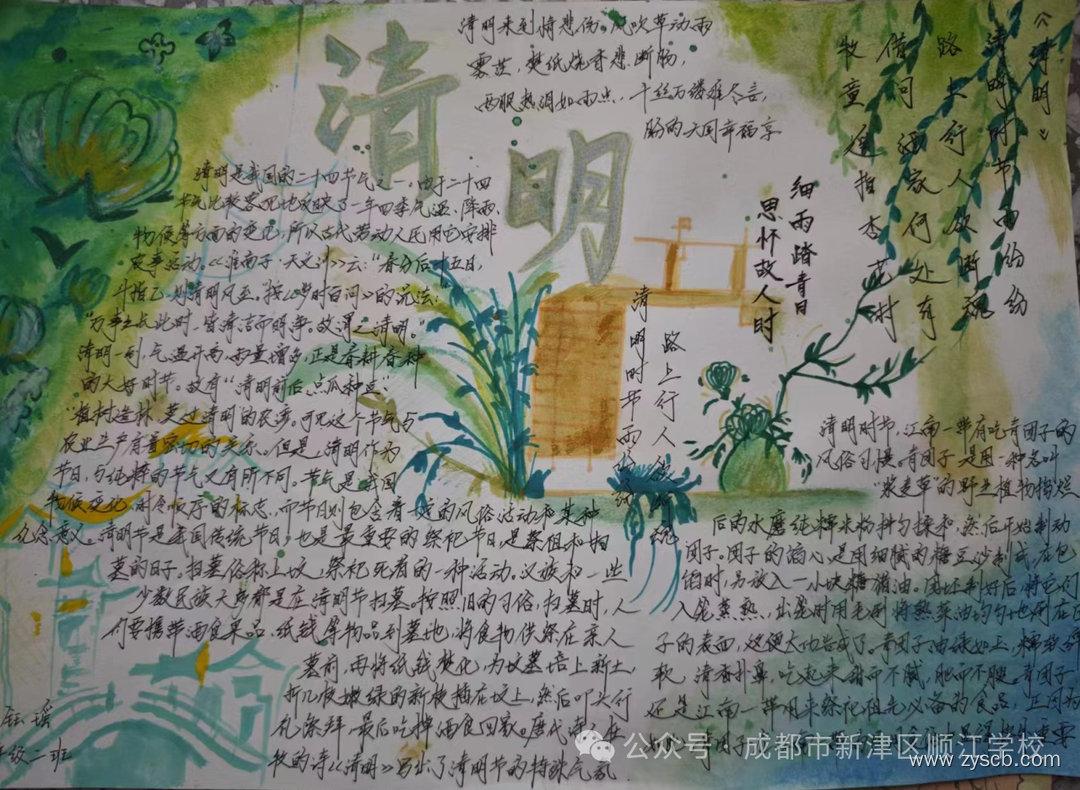 清明
清明来到将悲伤。风吹草动雨
雾茫，焚纸烧香悲断肠，
两眼热泪如雨点，千丝万缕难尽言，
肠的天国幸福享
《清明》
清明时节雨纷纷
路上行人欲断魂
借问酒家何处有
牧童遥指杏花村
细雨踏青日
思怀故人时
路上行人欲断魂
清明时节雨纷纷
清明是我国的二十四节气之一。由于二十四
节气比较客观地反映了一年四季气温、降雨、
物候等方面的变化，所以古代劳动人民用它安排
农事活动。《淮南子·天文训》云：“春分后十五日，
斗指乙，则清明风至。按《岁时百问》的说法：
“万物生长此时，皆清洁而明净。故谓之清明。”
清明一到，气温升高，雨量增多，正是春耕春种
的大好时节。故有“清明前后，点瓜种豆”
“植树造林，莫过清明的农谚。可见这个节气与
农业生产有着密切的关系。但是，清明作为
节日，与纯粹的节气又有所不同。节气是我国
物候变化、时令顺序的标志，而节日则包含着一定的风俗活动和某种
纪念意义。清明节是我国传统节日，也是最重要的祭祀节日，是祭祖和扫
墓的日子。扫墓俗称上坟，祭祀死者的一种活动。汉族和一些
少数民族大多都是在清明节扫墓。按照旧的习俗，扫墓时，人
们要携带酒食果品、纸钱等物品到墓地，将食物供祭在亲人
墓前，再将纸钱焚化，为坟墓培上新土，
折几枝嫩绿的新枝插在坟上，然后叩头行
礼祭拜，最后吃掉酒食回家。唐代诗人杜
牧的诗《清明》写出了清明节的特殊气氛
清明时节，江南一带有吃青团子的
风俗习惯。青团子是用一种名叫
“浆麦草”的野生植物捣烂
后的水磨纯糯米粉拌匀揉和，然后开始制动
团子。团子的馅心是用细腻的糖豆沙制成，在包
馅时，另放入一小块糖猪油。团坯制好后，将它们
入笼蒸熟，出笼时用毛刷将熟菜油均匀地刷在团
子的表面，这便大功告成了。青团子油绿如玉，糯
软，清香扑鼻，吃起来甜而不腻，肥而不腴。青团子
还是江南一带用来祭祀祖先必备的食品，正因为
重要
瑶
级二班
公众号 · 成都市新津区顺江学校
www.zyscb.com